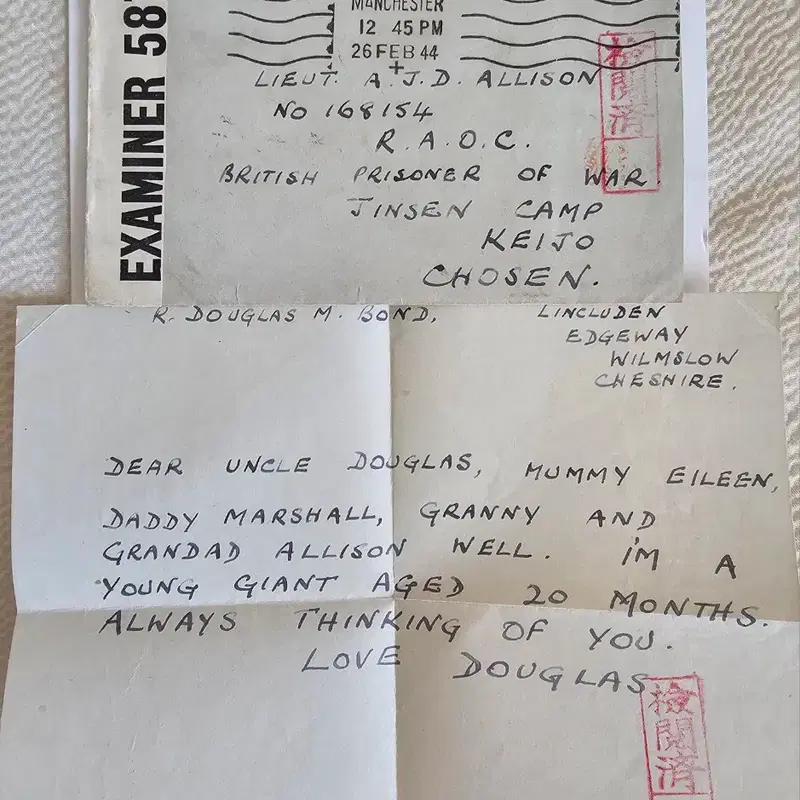 EXAMINER 58
MANCHESTER
12 45 PM
26 FEB 44
LIEUT. A. J. D. ALLISON
NO 168154
R. A. O. C.
BRITISH PRISONER OF WAR
JINSEN CAMP
KEIJO
CHOSEN.
檢閲済
R. DOUGLAS M. BOND,
LINCLUDEN
EDGEWAY
WILMSLOW
CHESHIRE.
DEAR UNCLE DOUGLAS, MUMMY EILEEN,
DADDY MARSHALL, GRANNY AND
GRANDAD ALLISON WELL. I'M A
YOUNG GIANT AGED 20 MONTHS.
ALWAYS THINKING OF YOU.
LOVE DOUGLAS
檢閲済